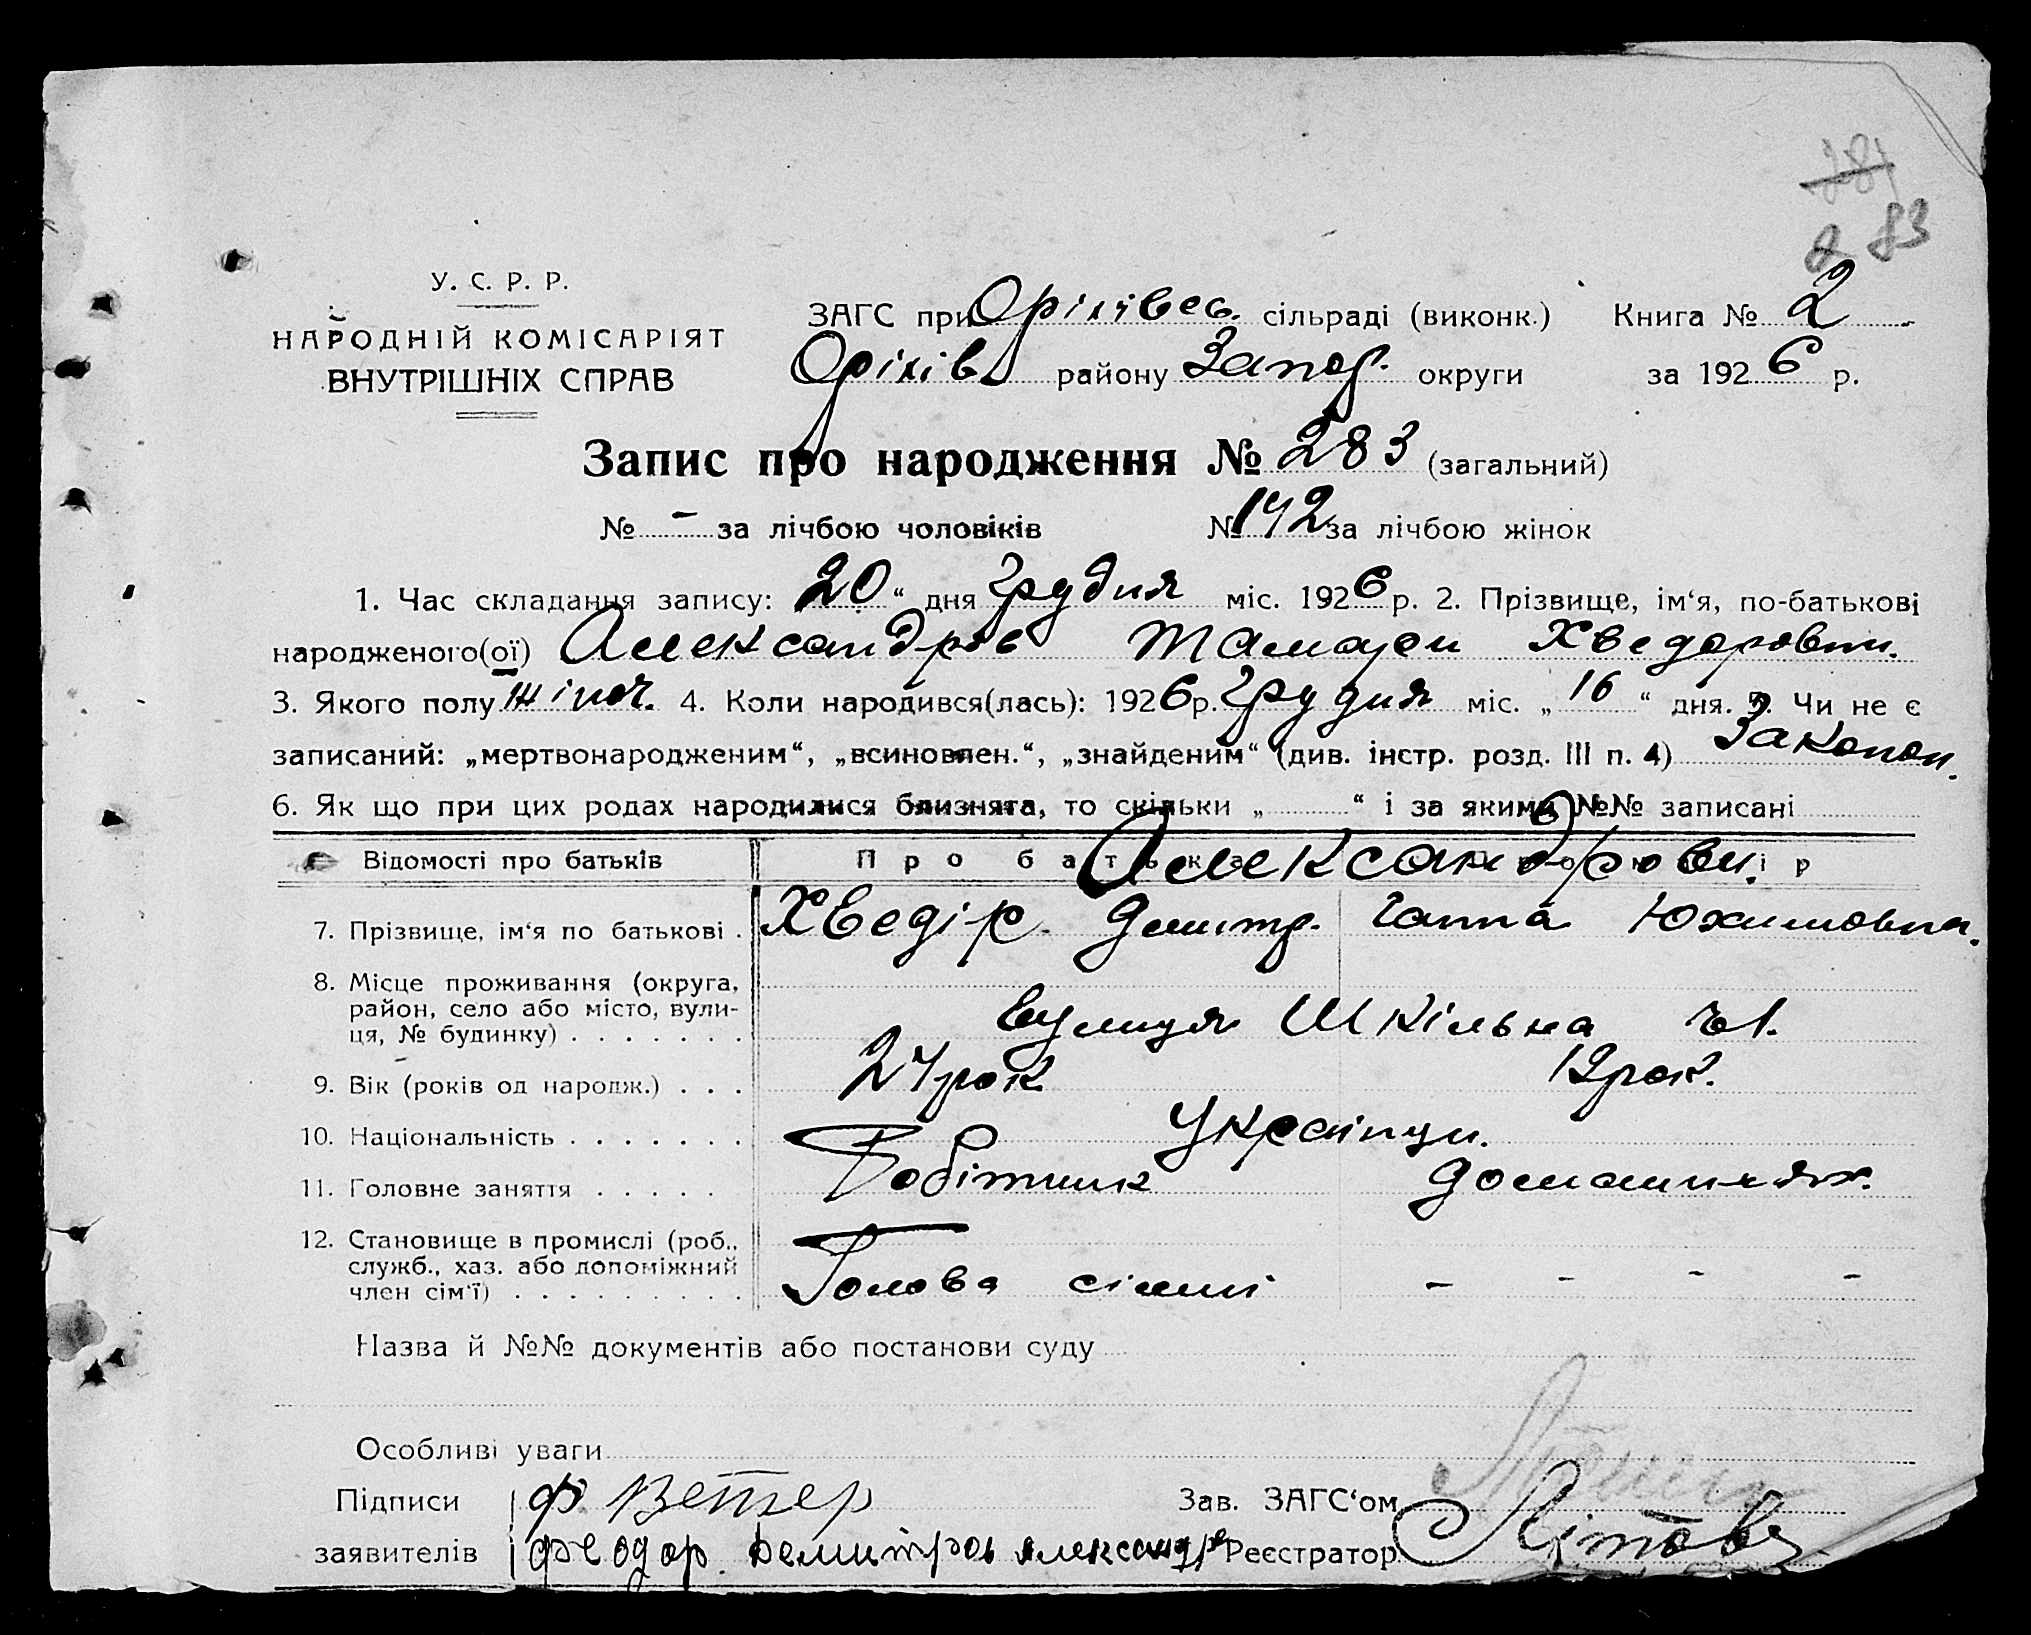 281
283
У. С. Р. Р.
НАРОДНІЙ КОМІСАРІЯТ
ВНУТРІШНІХ СПРАВ
ЗАГС при Оріхівськ. сільраді (виконк.) Книга № 2
Оріхів району Запор. округи за 1926 р.
Запис про народження № 283 (загальний)
№ - за лічбою чоловіків № 142 за лічбою жінок
1. Час складання запису: „20“ дня Грудня міс. 1926 р. 2. Прізвище, ім‘я, по-батькові
народженого(ої) Александров Тамари Хведоровни.
3. Якого полу жіноч. 4. Коли народився(лась): 1926 р. Грудня міс. „16“ дня. 5. Чи не є
записаний: „мертвонародженим“, „всиновлен.“, „знайденим“ (див. інстр. розд. III п. 4) Законон.
6. Як що при цих родах народилися близнята, то скільки „ “ і за якими №№ записані
Відомості про батьків Про батька Про матір
Александрови.
7. Прізвище, ім‘я по батькові . Хведір Дмитр. Ганна Юхимовна.
8. Місце проживання (округа,
район, село або місто, вули-
ця, № будинку) . . . . . . . вулиця Шкільна
9. Вік (років од народж.) . . . 24 рок 19 рок.
10. Національність . . . . . . . Українци.
11. Головне заняття . . . . . Робітник домашнях.
12. Становище в промислі (роб.,
служб., хаз. або допоміжний
член сім‘ї) . . . . . . . . . Голова сімни - - - -
Назва й №№ документів або постанови суду
Особливі уваги
Підписи Ф Ветер Зав. ЗАГС‘ом
заявителів феодор. Демитров александро Реєстратор